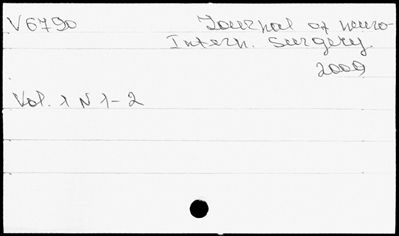 V6790 Journal of neuro-
Intern. Surgery.
2009
Vol. 1 N 1-2